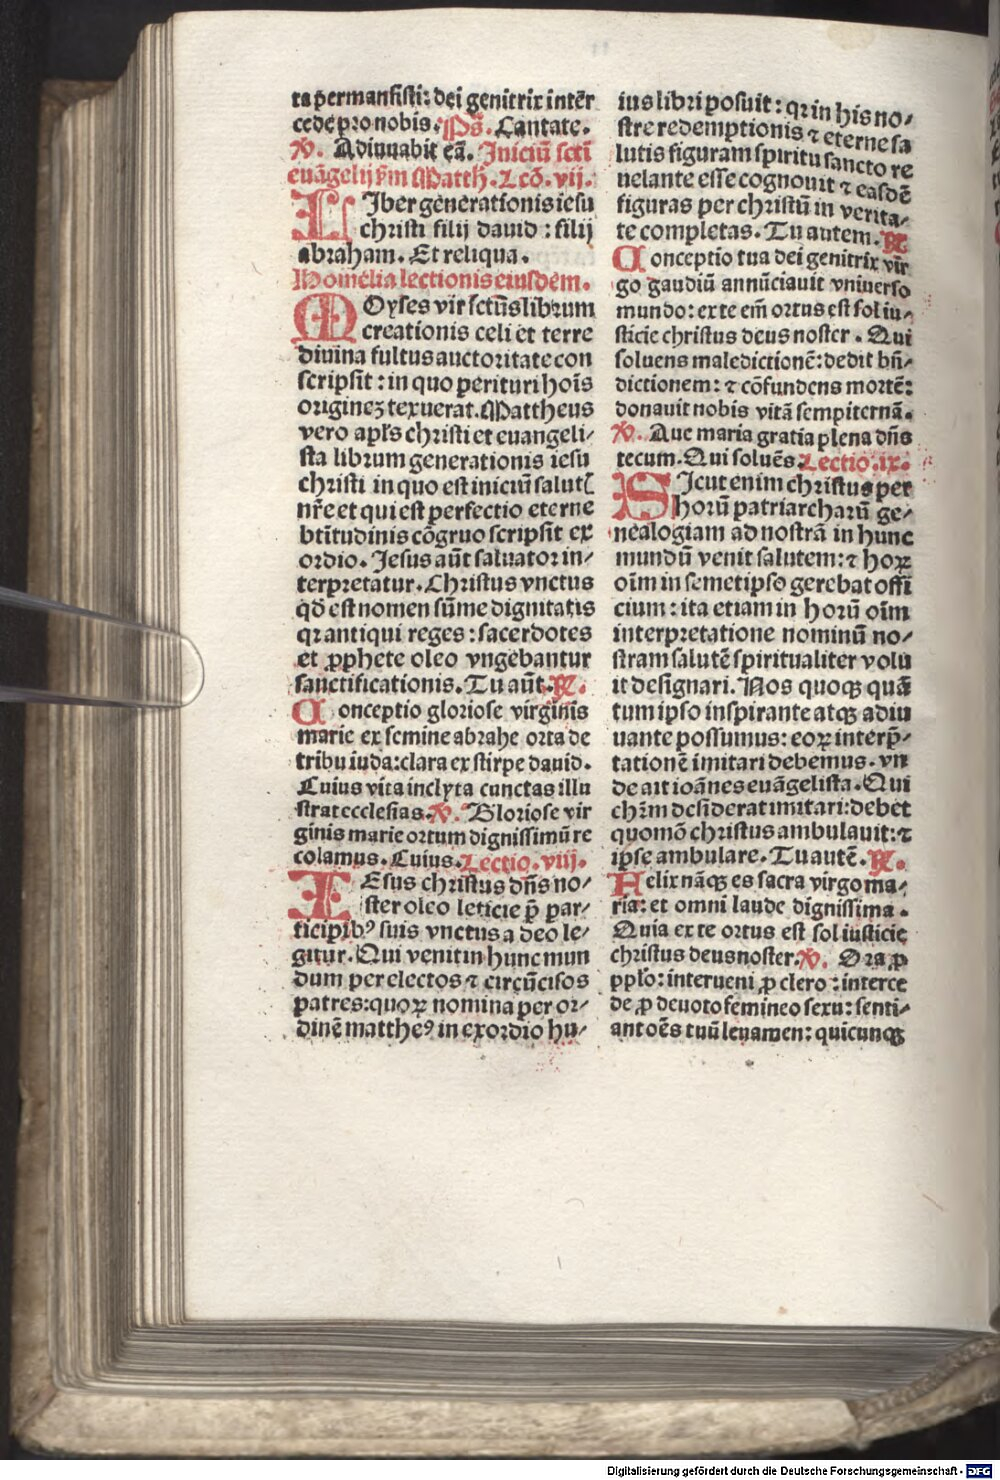 ta permansisti: dei genitrix intēr
cede pro nobis. Ps̄. Cantate.
℣. Adiuuabit eā. Iniciū scti
euāgelij ẜm Matth. Lcō. vij.
LIber generationis iesu
christi filij dauid : filij
abraham. Et reliqua.
Homelia lectionis eiusdem.
MOyses vir sctūs librum
creationis celi et terre
diuina fultus auctoritate con
scripsit : in quo perituri hoīs
originez texuerat. Mattheus
vero apl's christi et euangeli/
sta librum generationis iesu
christi in quo est iniciū salutꝭ
nr̄e et qui est perfectio eterne
btītudinis cōgruo scripsit ex
ordio. Jesus aūt saluator in/
terpretatur. Christus vnctus
qđ est nomen sūme dignitatis
qꝛ antiqui reges : sacerdotes
et ꝓphete oleo vngebantur
sanctificationis. Tu aūt. ℟.
Conceptio gloriose virginis
marie ex semine abrahe orta de
tribu iuda: clara ex stirpe dauid.
Cuius vita inclyta cunctas illu
strat ecclesias. ℣. Gloriose vir
ginis marie ortum dignissimū re
colamus. Cuius. Lectio. viij.
IEsus christus dn̄s no/
ster oleo leticie p̄ par/
ticipibꝰ suis vnctus a deo le/
gitur. Qui venit in hunc mun
dum per electos ⁊ circūcisos
patres: quoꝝ nomina per or/
dinē mattheꝰ in exordio hu/
ius libri posuit : qꝛ in his no/
stre redemptionis ⁊ eterne sa
lutis figuram spiritu sancto re
uelante esse cognouit ⁊ easdē
figuras per christū in verita/
te completas. Tu autem. ℟.
Conceptio tua dei genitrix vir̄
go gaudiū annūciauit vniuerso
mundo : ex te em̄ ortus est sol iu/
sticie christus deus noster. Qui
soluens maledictionē: dedit bn̄/
dictionem: ⁊ cōfundens mortē:
donauit nobis vitā sempiternā.
℣. Aue maria gratia plena dn̄s
tecum. Qui soluēs. Lectio. ix.
SIcut enim christus per
horū patriarcharū ge/
nealogiam ad nostrā in hunc
mundū venit salutem: ⁊ hoꝝ
oīm in semetipso gerebat offi
cium : ita etiam in horū oīm
interpretatione nominū no/
stram salutē spiritualiter volu
it designari. Nos quoqꝫ quā
tum ipso inspirante atqꝫ adiu
uante possumus: eoꝝ interp̄/
tationē imitari debemus. vn
de ait ioānes euāgelista. Qui
chr̄m desiderat imitari: debet
quomō christus ambulauit: ⁊
ipse ambulare. Tu autē. ℟.
Felix nāqꝫ es sacra virgo ma/
ria: et omni laude dignissima.
Quia ex te ortus est sol iusticie
christus deus noster. ℣. Ora ꝓ
ppl'o: interueni ꝓ clero : interce
de ꝓ deuoto femineo sexu: senti/
ant oēs tuū leuamen: quicunqꝫ
Digitalisierung gefördert durch die Deutsche Forschungsgemeinschaft - DFG